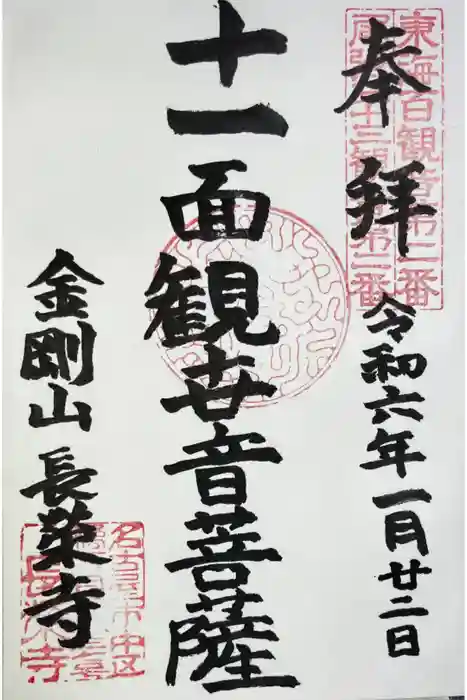 東海百観音第二番
尾張三十三観音第二番
奉拝
令和六年一月廿二日
十一面観世音菩薩
金剛山長栄寺
名古屋市中区
長栄寺